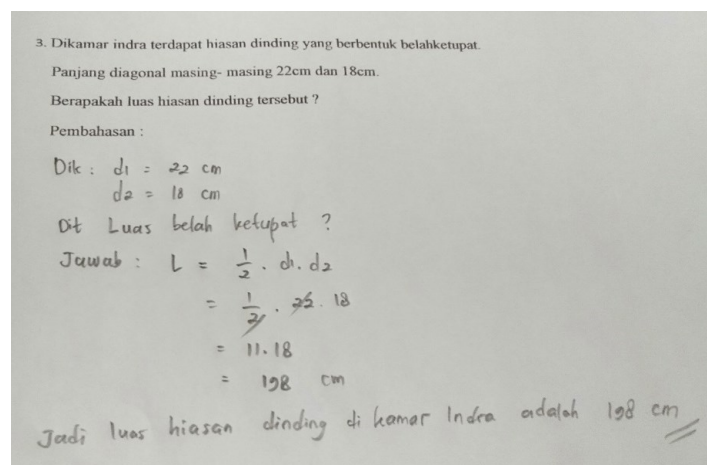 3. Dikamar indra terdapat hiasan dinding yang berbentuk belahketupat.
Panjang diagonal masing- masing 22cm dan 18cm.
Berapakah luas hiasan dinding tersebut ?
Pembahasan :
Dik : d1 = 22 cm
d2 = 18 cm
Dit Luas belah ketupat ?
Jawab : L = 1/2 . d1. d2
= 1/2 . 22 . 18
= 11.18
= 198 cm
Jadi luas hiasan dinding di kamar Indra adalah 198 cm